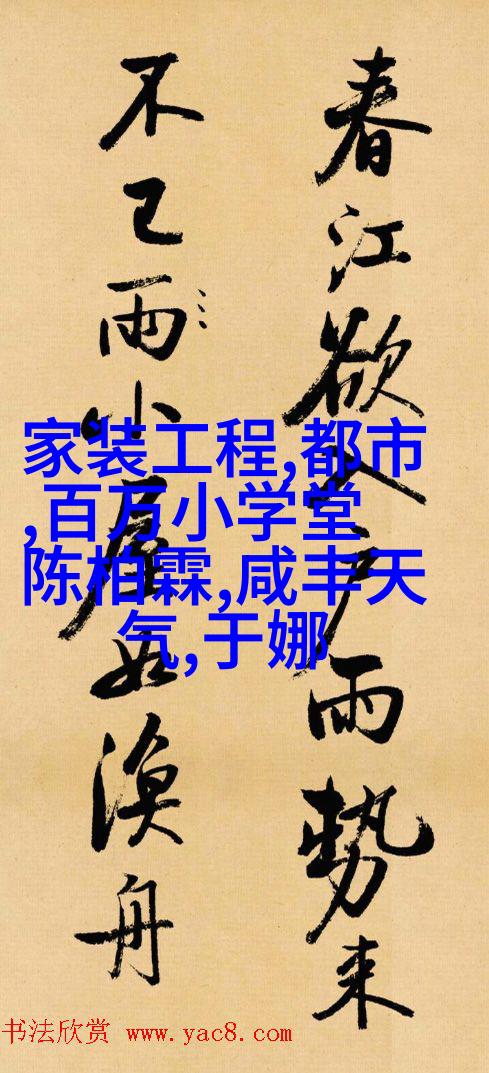 春江欲入户雨勢来
不已雨小屋如漁舟
家装工程,都市
,百万小学堂
陈柏霖,咸丰天
气,于娜
书法欣赏 www.yac8.com